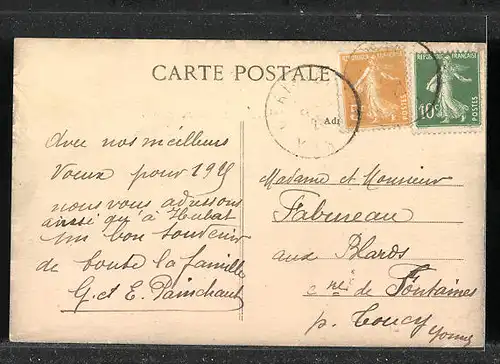 CARTE POSTALE
RÉPUBLIQUE FRANÇAISE
10c
POSTES
POSTES
Adr
Avec nos meilleurs
Voeux pour
nous vous adressons
aussi qu'à
un bon souvenir
de toute la famille
G. et E. Painchaut
Madame et Monsieur
Fabureau
aux Blards
cne de Fontaines
p. Toucy
Yonne